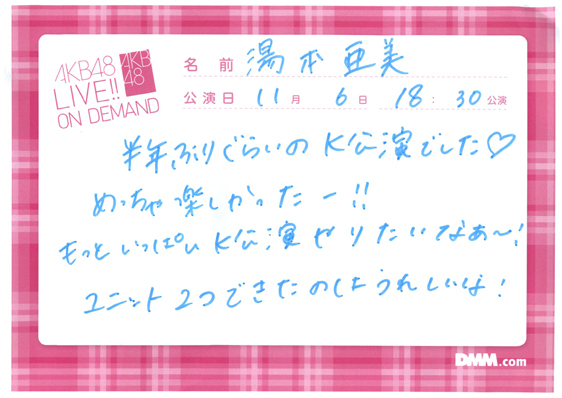 AKB48
LIVE!!
ON DEMAND
AKB
48
名前 湯本亜美
公演日 11月 6日 18:30公演
半年ぶりぐらいのK公演でした♡
めっちゃ楽しかったー!!
もっといっぱいK公演やりたいなあ〜!
ユニット2つできたのはうれしいよ!
DMM.com